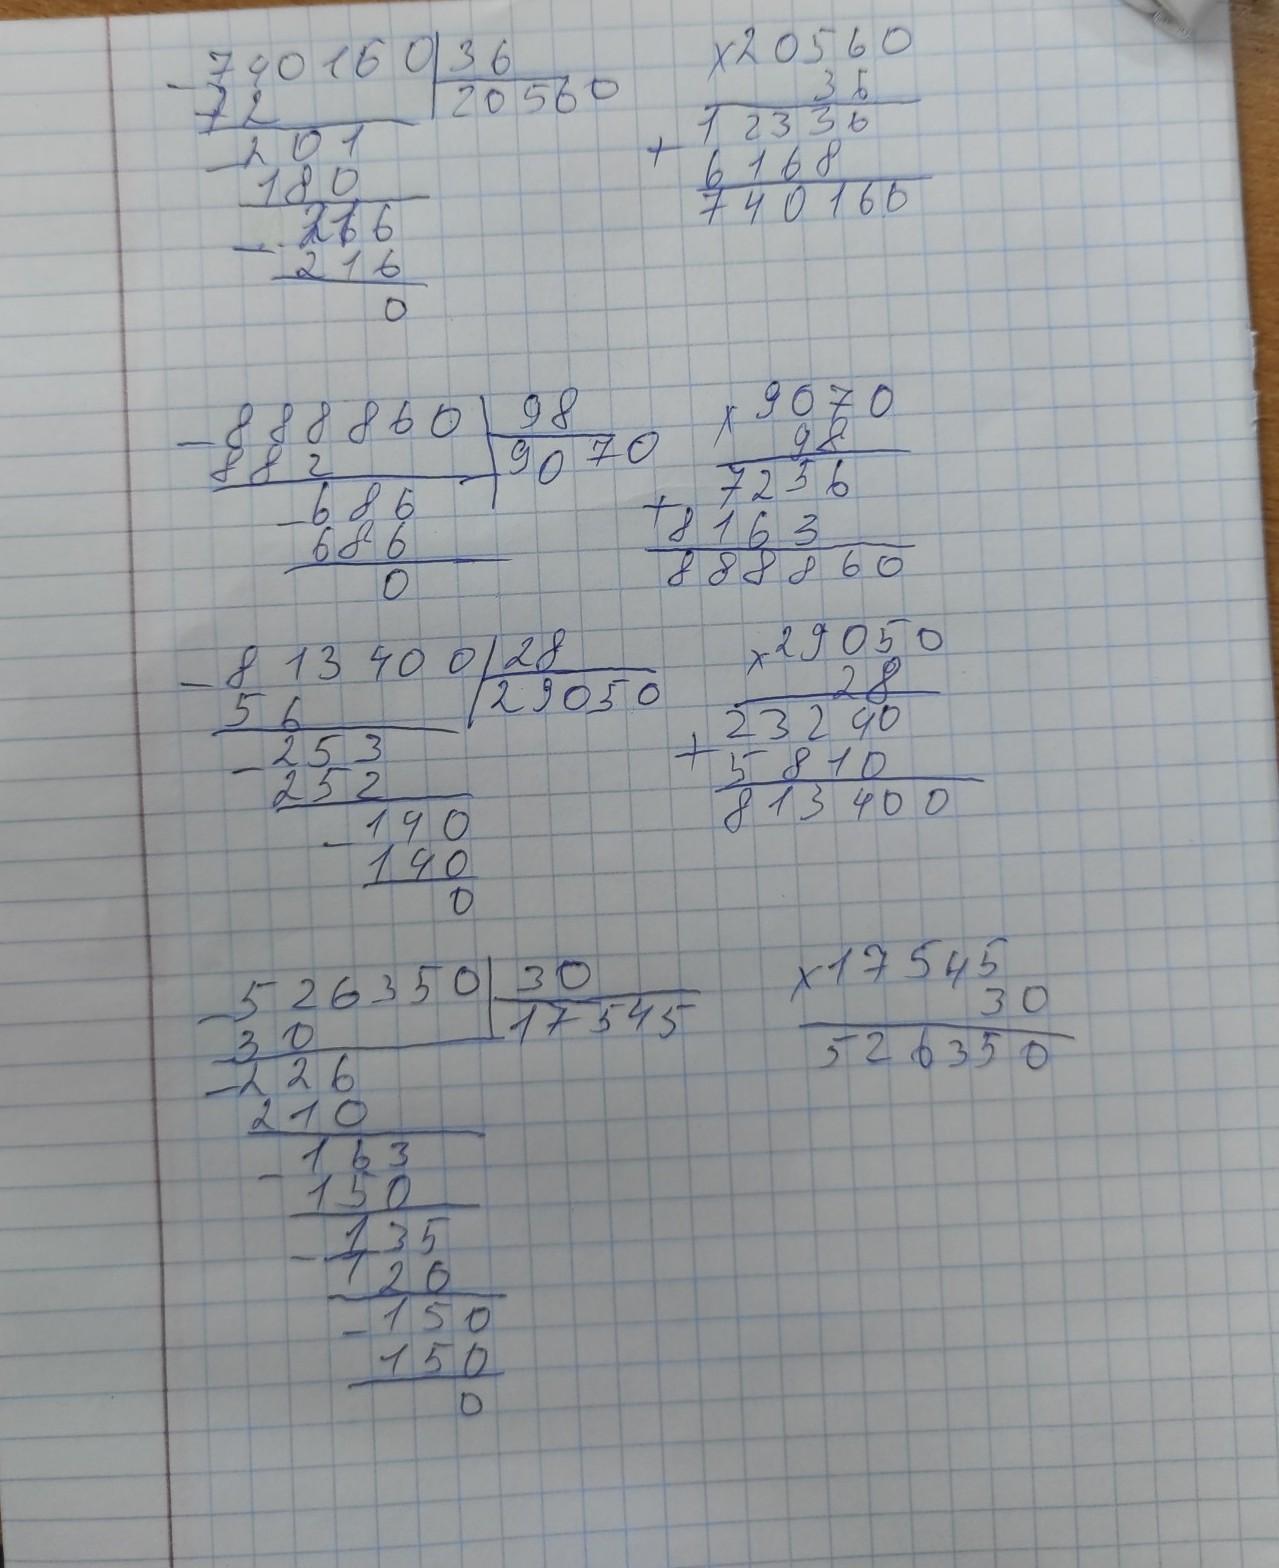 - 740160 | 36
72 | 20560
- 201
180
- 216
- 216
0
× 20560
36
12336
+ 6168
740160
- 888860 | 98
882 | 9070
- 686
686
0
× 9070
98
7256
+ 8163
888860
- 813400 | 28
56 | 29050
- 253
252
- 140
140
0
× 29050
28
23240
+ 5810
813400
- 526350 | 30
30 | 17545
- 226
210
- 163
150
- 135
120
- 150
150
0
× 17545
30
526350